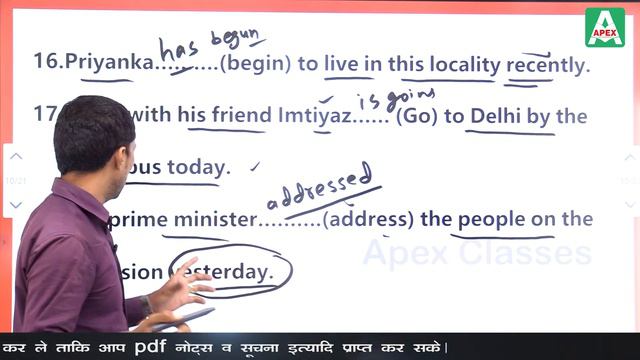 APEX
has begun
16.Priyanka..........(begin) to live in this locality recently.
is going
17. with his friend Imtiyaz...... (Go) to Delhi by the
bus today.
addressed
prime minister..........(address) the people on the
yesterday.
Apex Classes
10/21
कर ले ताकि आप pdf नोट्स व सूचना इत्यादि प्राप्त कर सके।